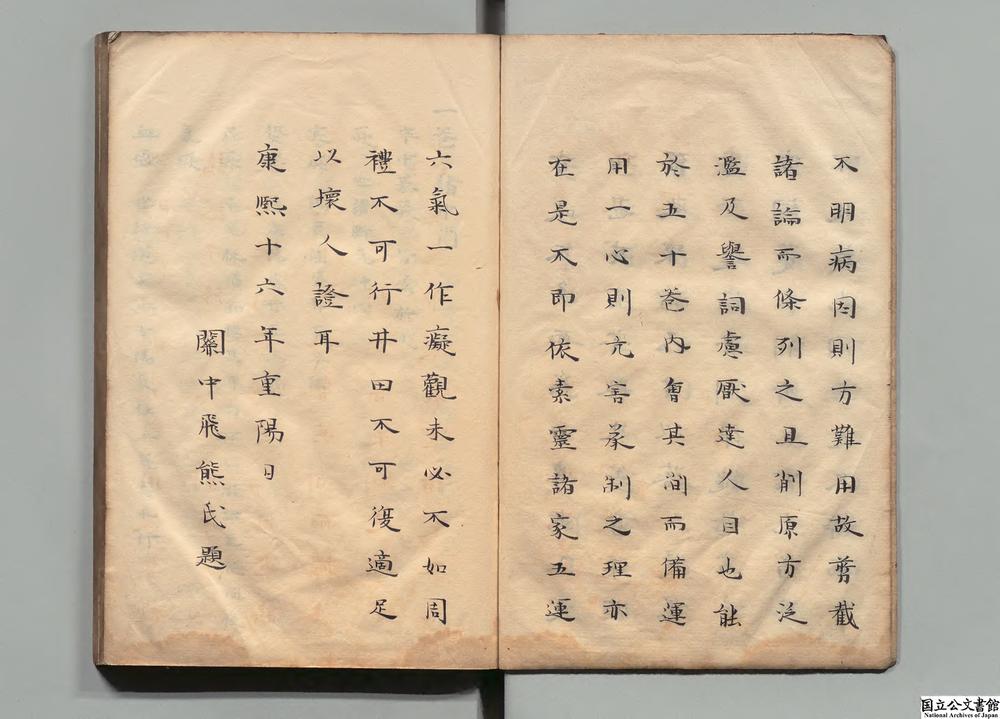 不明病因則方難用故剪截
諸論而條列之且削原方泛
濫及譽詞慮厭達人目也能
於五十卷内會其間而備運
用一心則亢害承制之理亦
在是不即依素靈諸家五運
六氣一作癡觀未必不如周
禮不可行井田不可復適足
以壞人證耳
康熙十六年重陽日
關中飛熊氏題
国立公文書館
National Archives of Japan